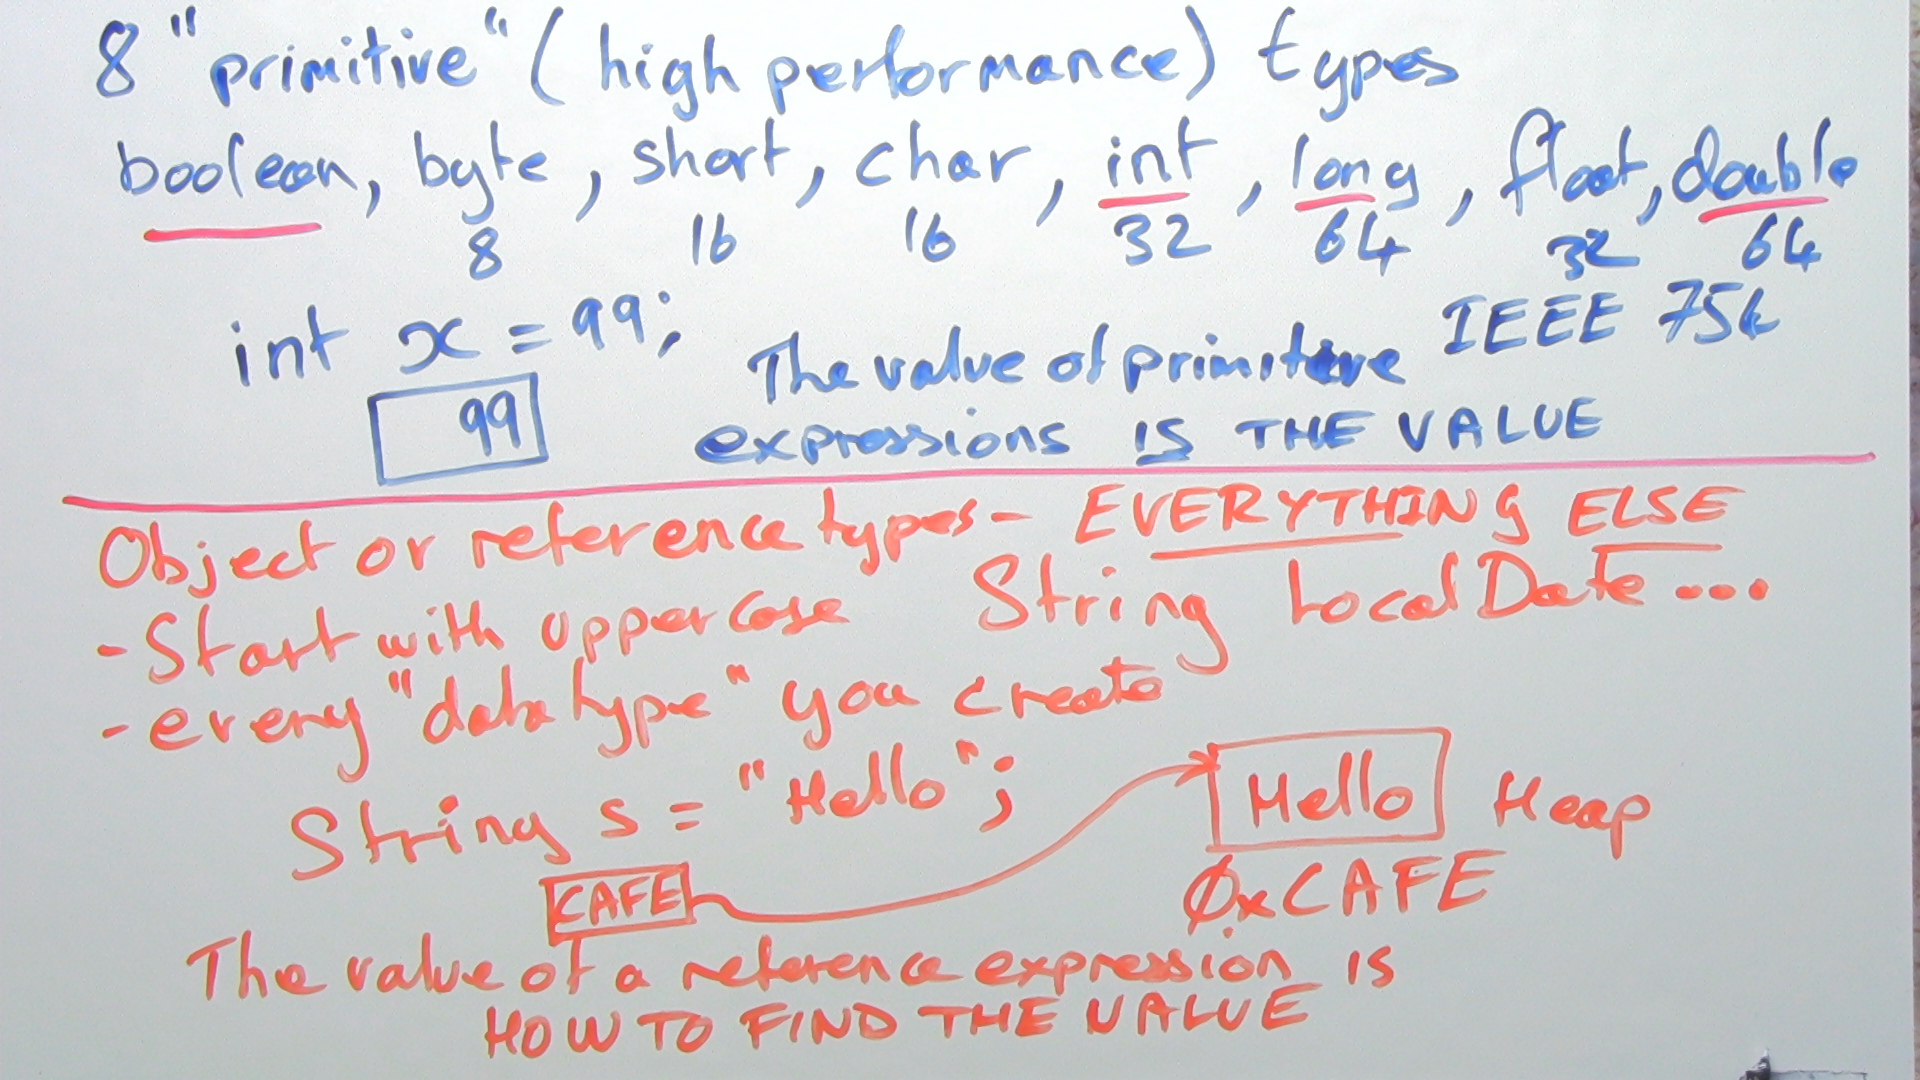 8 "primitive" (high performance) types
boolean, byte, short, char, int, long, float, double
8 16 16 32 64 32 64
int x = 99; IEEE 754
99
The value of primitive
expressions IS THE VALUE
Object or reference types - EVERYTHING ELSE
- Start with uppercase String LocalDate ...
- every "data type" you create
String s = "Hello"; Hello Heap
CAFE 0xCAFE
The value of a reference expression is
HOW TO FIND THE VALUE